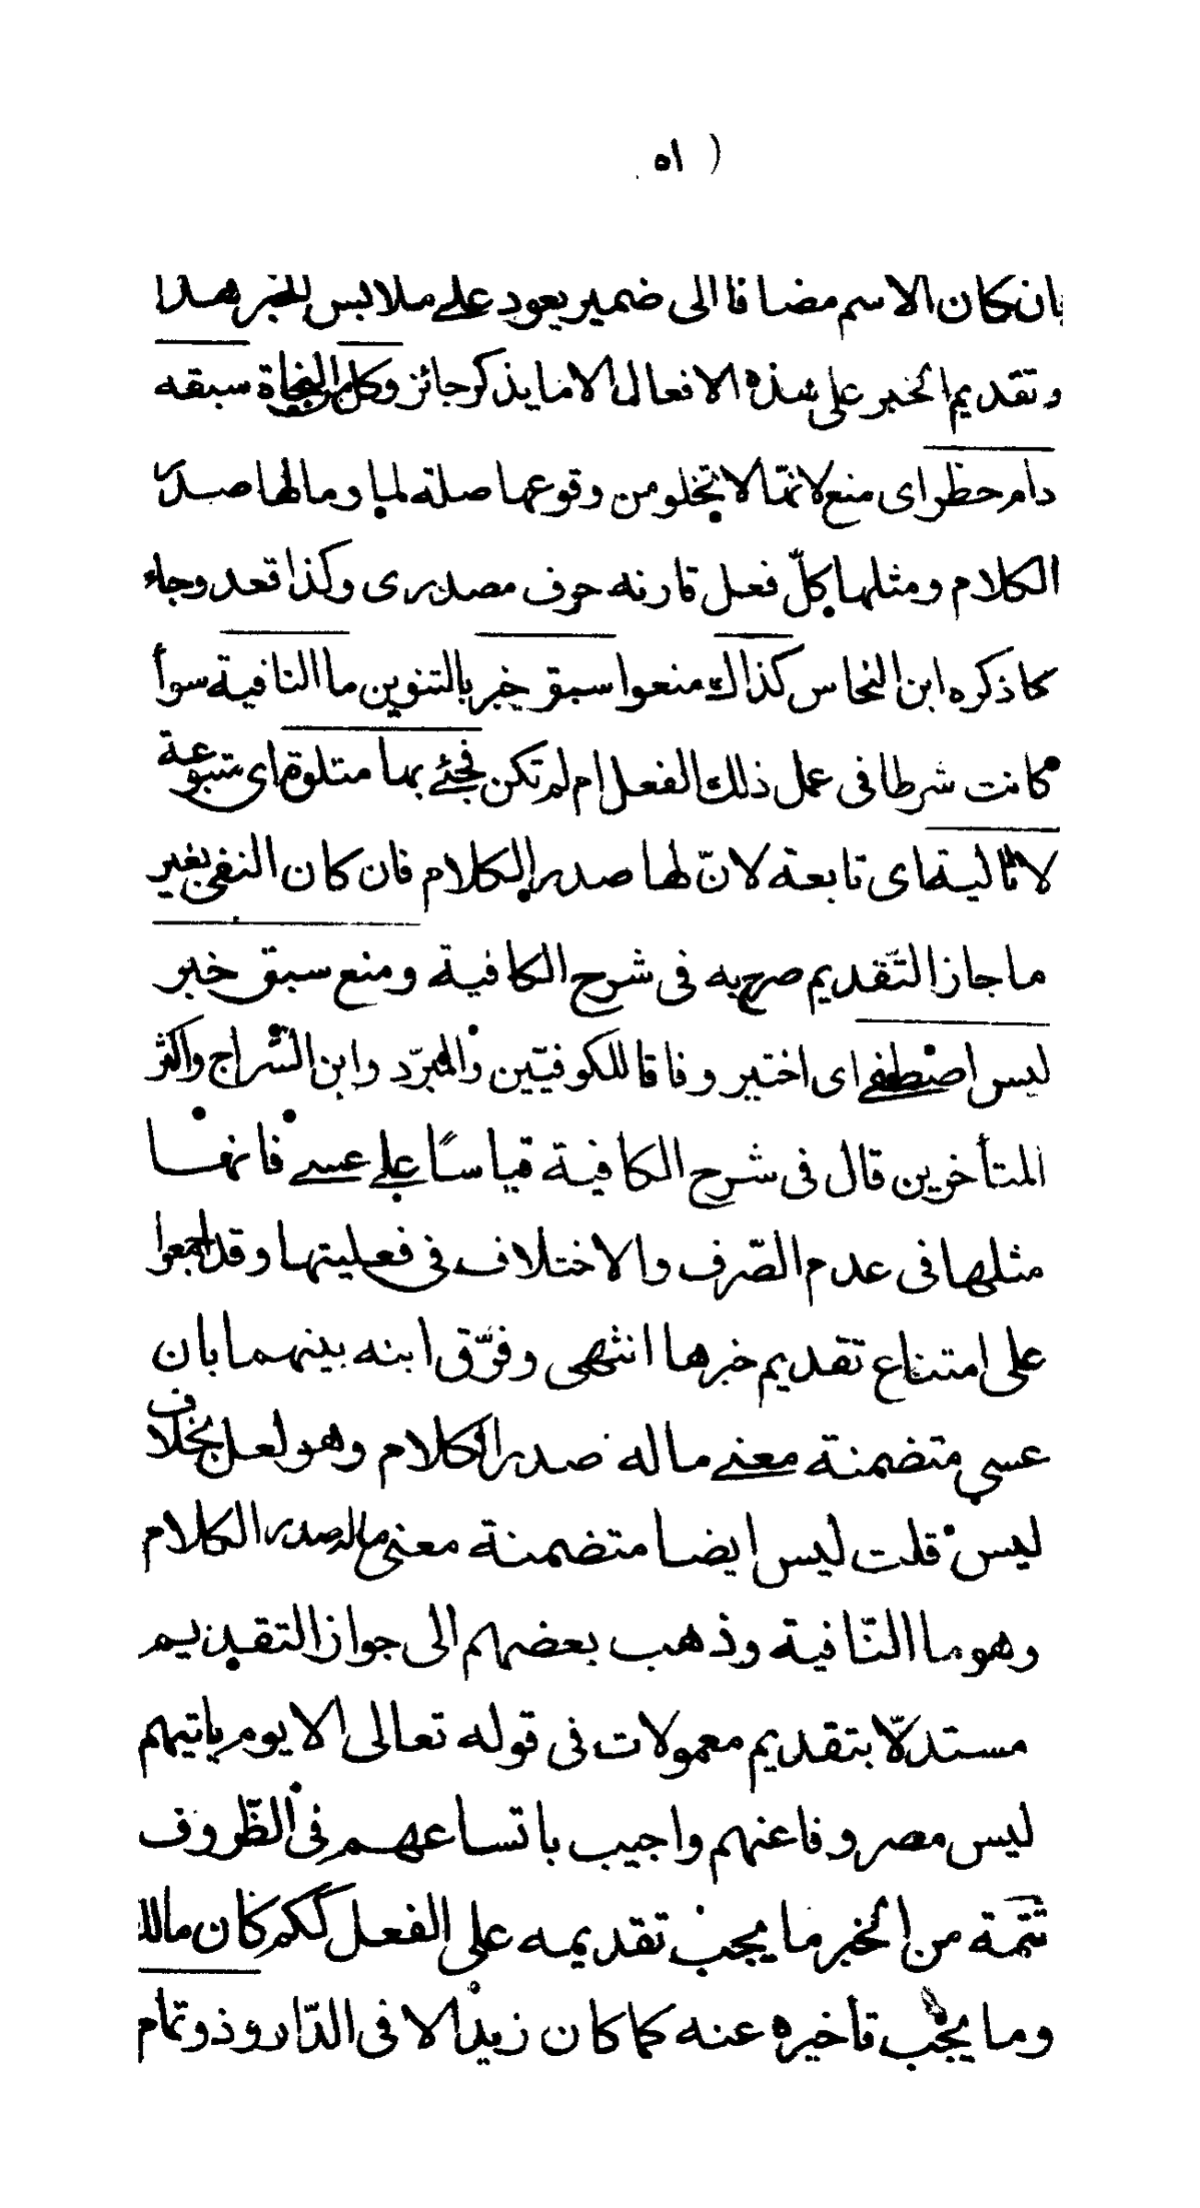 ( ٥١
بان كان الاسم مضافا الى ضمير يعود على ملابس للخبر هذا
وتقديم الخبر على هذه الافعال الا ما يذكر جائز وكل النحاة سبقه
دام حظر اى منع لانها لا تخلو من وقوعها صلة لما وما لها صدر
الكلام ومثلها كلّ فعل قارنه حرف مصدرى وكذا قعد وجاء
كما ذكره ابن النحاس كذاك منعوا سبق خبر بالتنوين ما النافية سوأ
كانت شرطا فى عمل ذلك الفعل ام لم تكن فجئ بها متلوة اى متبوعة
لا تالية اى تابعة لانّ لها صدر الكلام فان كان النفى بغير
ما جاز التّقديم صرح به فى شرح الكافية ومنع سبق خبر
ليس اصطفى اى اختير وفاقا للكوفيّين والمبرّد وابن السّراج واكثر
المتأخرين قال فى شرح الكافية قياسًا على عسى فانها
مثلها فى عدم التصّرف والاختلاف فى فعليتها وقد اجمعوا
على امتناع تقديم خبرها انتهى وفرّق ابنه بينهما بان
عسى متضمنة معنى ما له صدر الكلام وهو لعل بخلاف
ليس قلت ليس ايضا متضمنة معنى ما له صدر الكلام
وهو ما النّافية وذهب بعضهم الى جواز التقديم
مستدلّا بتقديم معمولات فى قوله تعالى الا يوم ياتيهم
ليس مصروفا عنهم واجيب باتساعهم فى الظّروف
تتمّة من الخبر ما يجب تقديمه على الفعل ككم كان مالك
وما يجب تأخيره عنه كما كان زيد الا فى الدّار وذو تمام